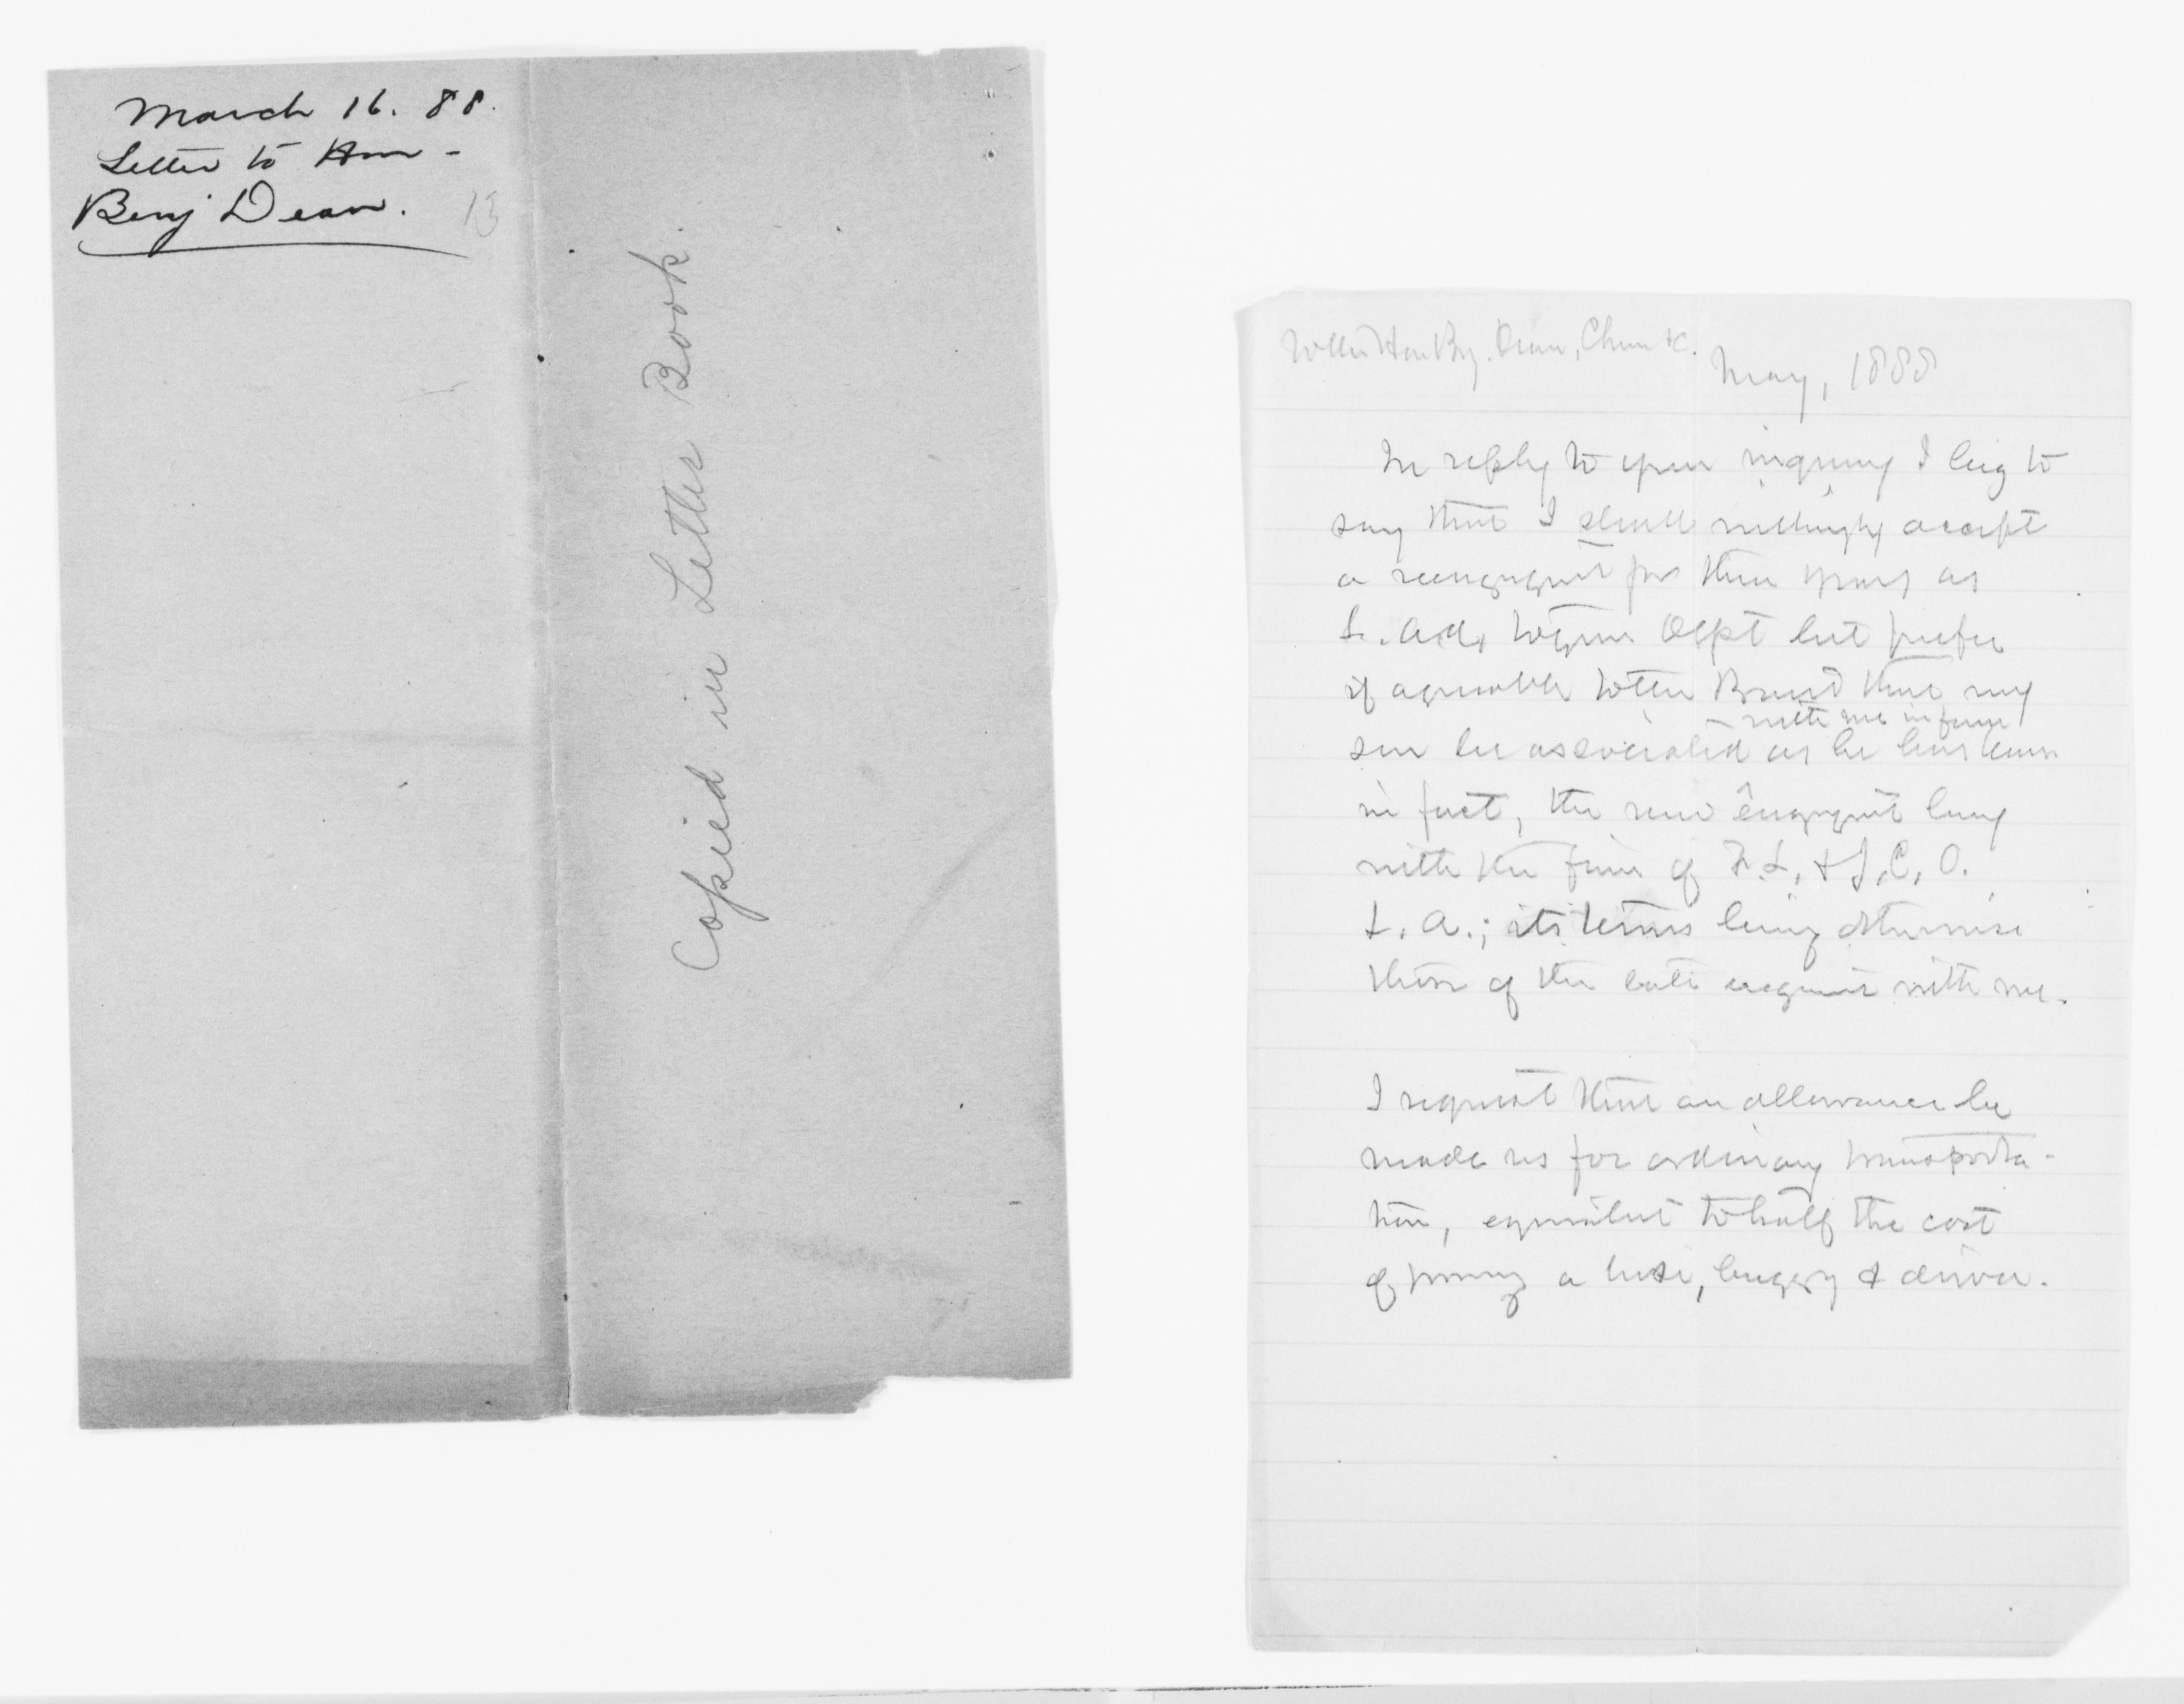 March 16. 88.
Letter to Hon-
Benj Dean.
13
Copied in Letter Book.
To the Hon Benj. Dean, Chmn &c.
May, 1888
In reply to your inquiry I beg to
say that I shall willingly accept
a reengagmt for three years as
L. Adr to your Dept but prefer
if agreeable to the Board that my
with me in form
son be associated as he has been
in fact, the new engagmt being
with the firm of F. L. & J. C. O.
L. A.; its terms being otherwise
those of the late engagmt with me.
I request that an allowance be
made us for ordinary transporta-
tion, equivalent to half the cost
of a horse, buggy & driver.